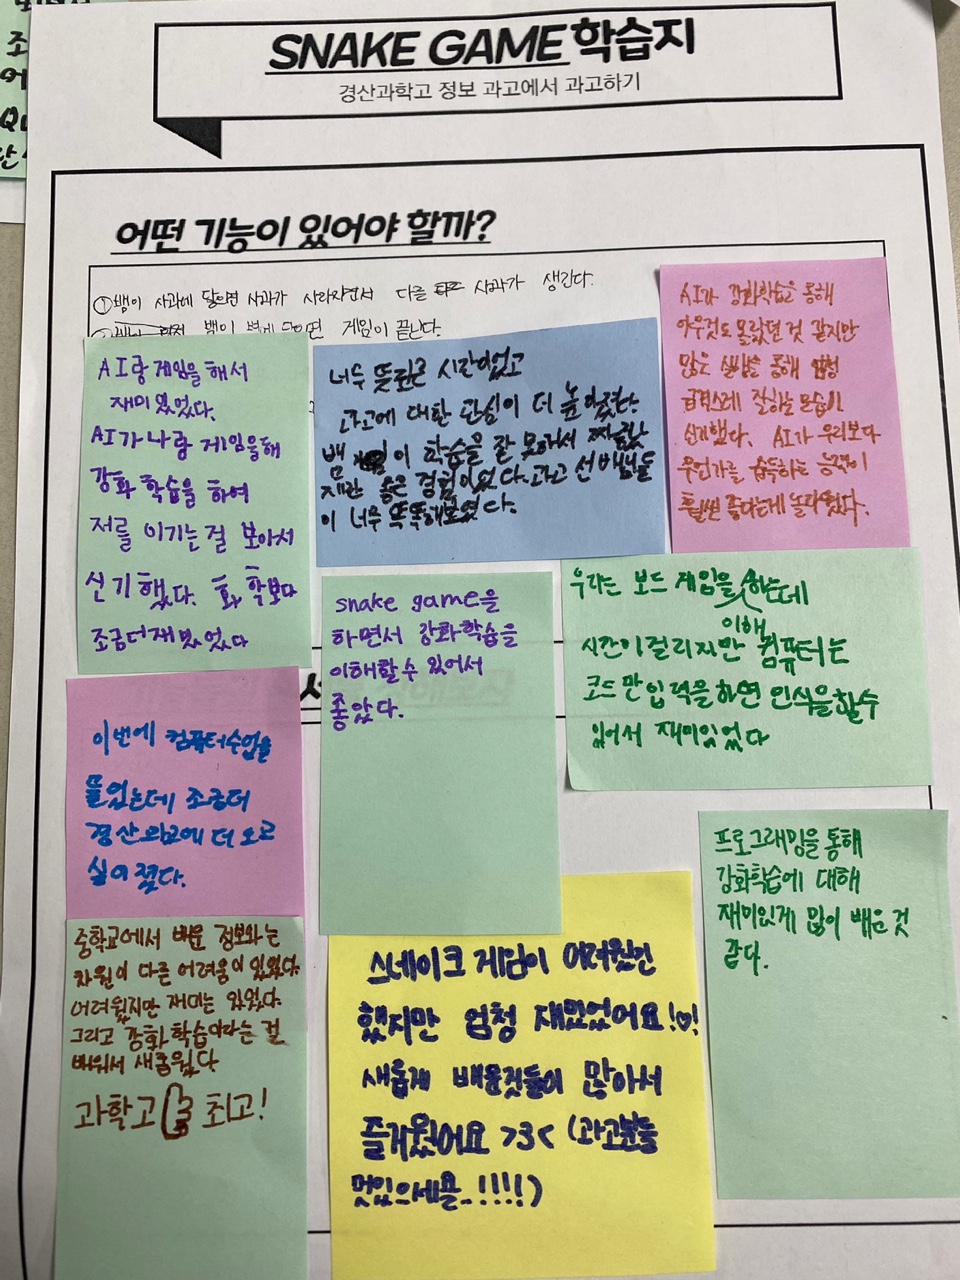 SNAKE GAME 학습지
경산과학고 정보 과고에서 과고하기
어떤 기능이 있어야 할까?
① 뱀이 사과에 닿으면 사과가 사라지면서 다른 사과가 생긴다.
뱀이 벽에 닿으면 게임이 끝난다.
AI랑 게임을 해서
재미 있었다.
AI가 나랑 게임을 해
강화 학습을 하여
저를 이기는 걸 보아서
신기했다. 화학보다
조금더 재밌었다
너무 뜻깊은 시간이었고
과고에 대한 관심이 더 높아졌다.
뱀 이 학습을 잘 못해서
좋은 경험이었다. 과고 선배님들
이 너무 똑똑해보였다.
AI가 강화학습을 통해
아무것도 몰랐던 것 같지만
많은 실험을 통해 엄청
급격스레 잘하는 모습이
신기했다. AI가 우리보다
무언가를 습득하는 능력이
훨씬 좋다는데 놀라웠다.
snake game을
하면서 강화학습을
이해할 수 있어서
좋았다.
우리는 보드 게임을 하는데
이해
시간이 걸리지만 컴퓨터는
코드만 입력을 하면 인식을 할수
있어서 재미있었다
이번에 컴퓨터수업을
들었는데 조금더
경산과고에 더 오고
싶어졌다.
중학교에서 배운 정보와는
차원이 다른 어려움이 있었다.
어려웠지만 재미는 있었다.
그리고 강화 학습이라는 걸
배워서 새로웠다
과학고 최고!
스네이크 게임이 어려웠긴
했지만 엄청 재밌었어요!♡!
새롭게 배운것들이 많아서
즐거웠어요 >3< (과고분들
멋있으세욜..!!!!)
프로그래밍을 통해
강화학습에 대해
재미있게 많이 배운 것
같다.